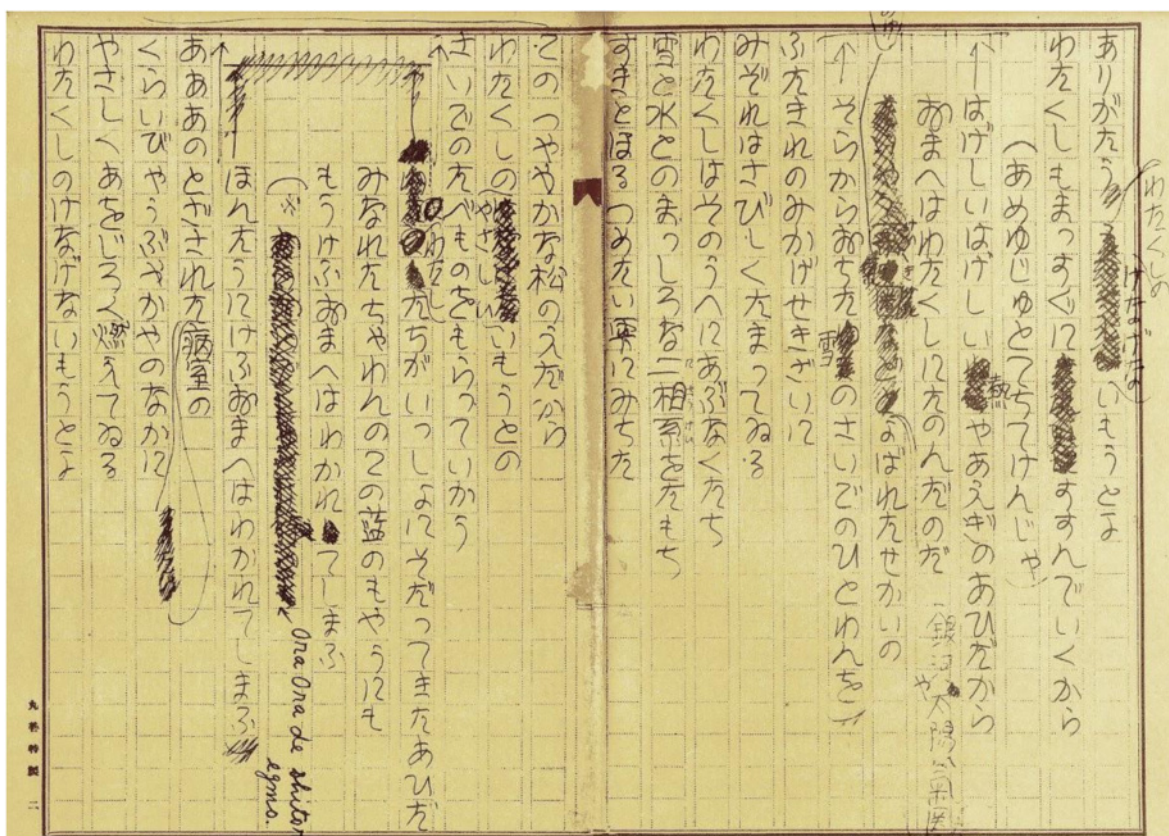 ありがたう わたくしの けなげな いもうとよ
わたくしもまっすぐにすすんでいくから
(あめゆじゅとてちてけんじゃ)
はげしいはげしい熱やあえぎのあひだから
おまへはわたくしにたのんだのだ
銀河や太陽 などとよばれたせかいの
そらからおちた雪のさいごのひとわんを
ふたきれのみかげせきざいに
みぞれはさびしくたまってゐる
わたくしはそのうへにあぶなくたち
雪と水とのまっしろな二相系をたもち
すきとほるつめたい雫にみちた
このつややかな松のえだから
わたくしのやさしいいもうとの
さいごのたべものをもらっていかう
わたしたちがいっしょにそだってきたあひだ
みなれたちやわんのこの藍のもやうにも
もうけふおまへはわかれてしまふ
(Ora Ora de shitori egmo.
ほんたうにけふおまへはわかれてしまふ
あああのとざされた病室の
くらいびやうぶやかやのなかに
やさしくあをじろく燃えてゐる
わたくしのけなげないもうとよ
丸善特製 二